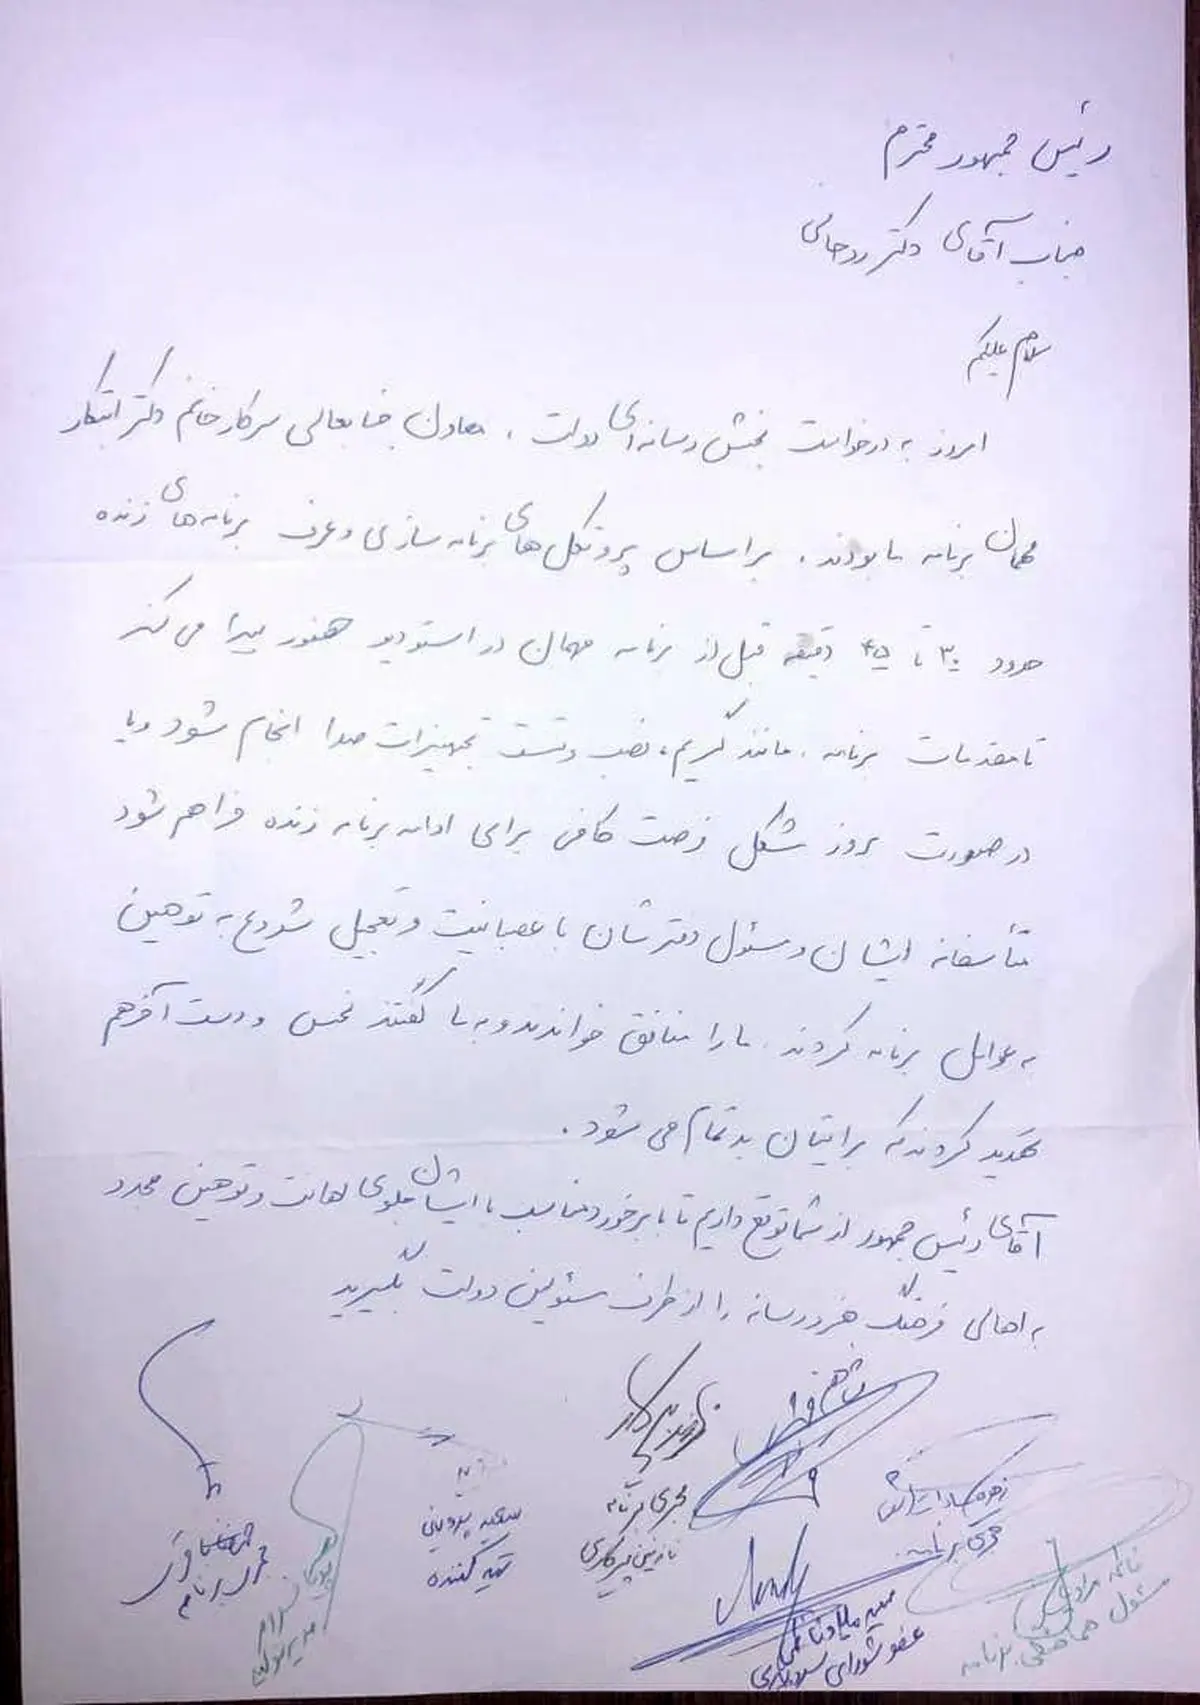 رئیس جمهور محترم
جناب آقای دکتر روحانی
سلام علیکم
امروز به درخواست بخش رسانه‌ای دولت، معاون جنابعالی سرکار خانم دکتر ابتکار
مهمان برنامه ما بودند. براساس پروتکل‌های برنامه سازی و عرف برنامه‌های زنده
حدود ۳۰ تا ۴۵ دقیقه قبل از برنامه مهمان در استودیو حضور پیدا می کند
تا مقدمات برنامه، مانند گریم، نصب و تست تجهیزات صدا انجام شود و یا
در صورت بروز مشکل فرصت کافی برای ادامه برنامه زنده فراهم شود
متأسفانه ایشان و مسئول دفترشان با عصبانیت و تعجیل شروع به توهین
به عوامل برنامه کردند. ما را منافق خواندند و به ما گفتند نجس و دست آخر هم
تهدید کردند که برایتان بد تمام می شود.
آقای رئیس جمهور از شما توقع داریم تا با برخورد مناسب با ایشان جلوی اهانت و توهین مجدد
به اهالی فرهنگ هنر و رسانه را از طرف مسئولین دولت بگیرید
مجری برنامه
نازنین پیرکاری
مجری برنامه
سعید پروینی
تهیه کننده
مجری برنامه
عضو شورای سردبیری
مسئول هماهنگی برنامه
مدیر تولید